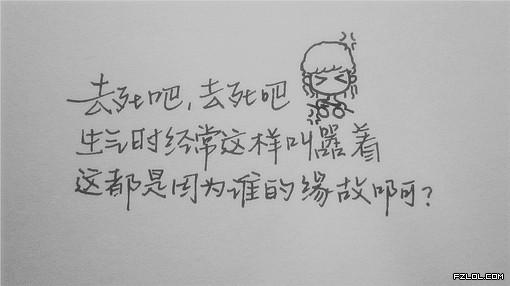 去死吧,去死吧
生气时经常这样叫嚣着
这都是因为谁的缘故啊?
FZLOL.COM